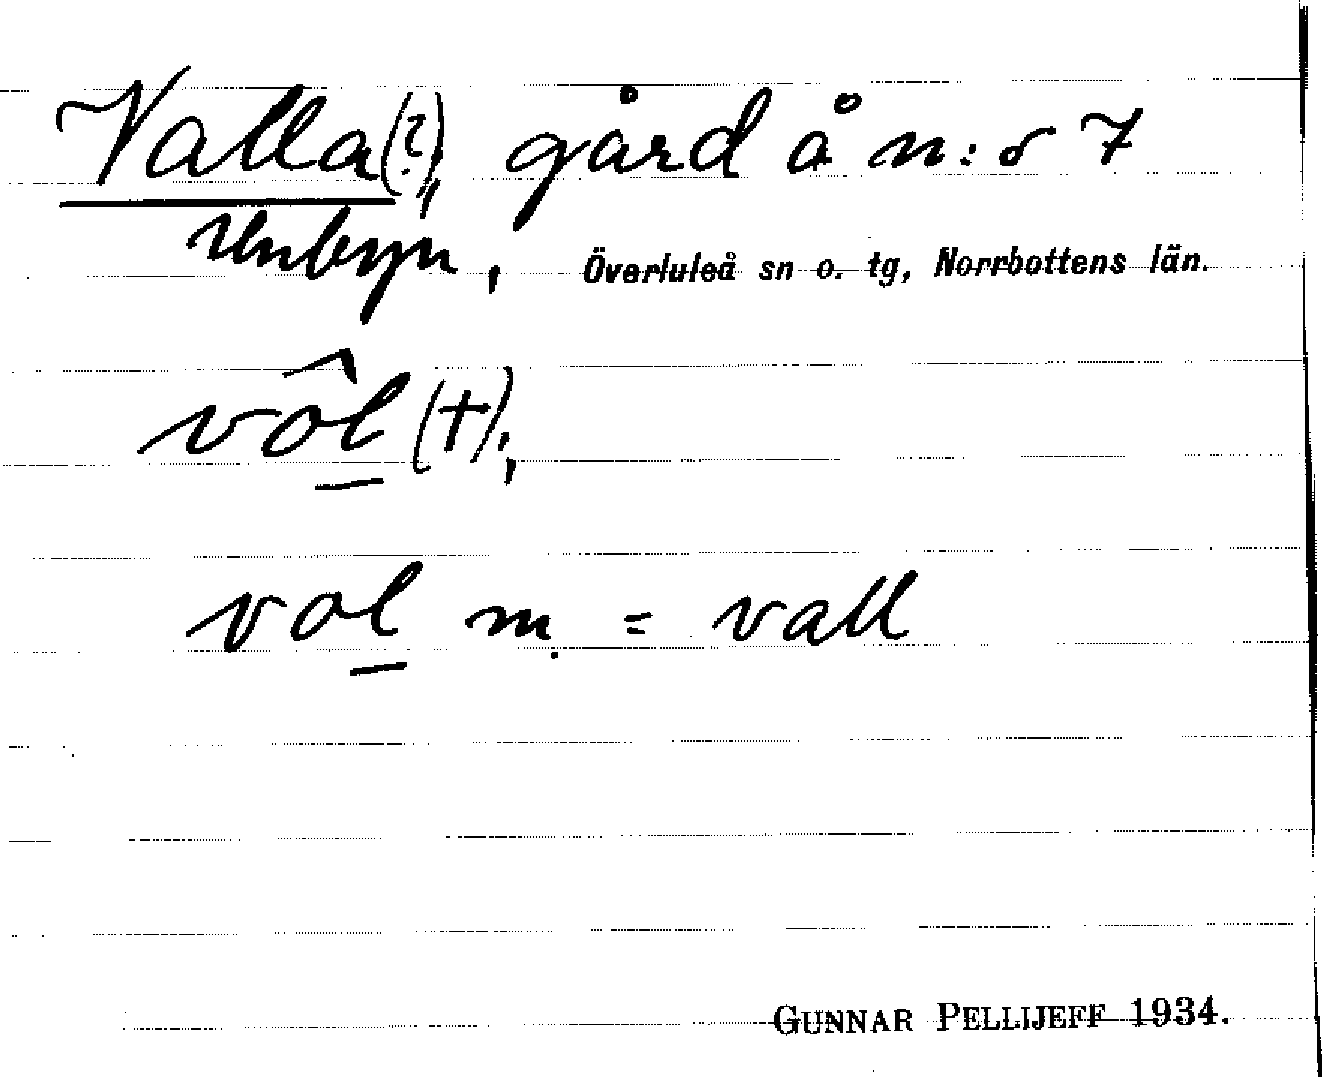 Valla(?), gård å n:o 7
Unbyn, Överluleå sn o. tg, Norrbottens län.
vôl (†),
vol m. = vall
GUNNAR PELLIJEFF 1934.